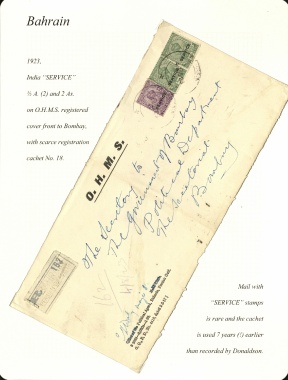 Bahrain
1923,
India "SERVICE"
½ A. (2) and 2 As.
on O.H.M.S. registered
cover front to Bombay,
with scarce registration
cachet No. 18.
O. H. M. S.
The Secretary to
The Government of Bombay
Political Department
The Secretariat
Bombay
Mail with
"SERVICE" stamps
is rare and the cachet
is used 7 years (!) earlier
than recorded by Donaldson.